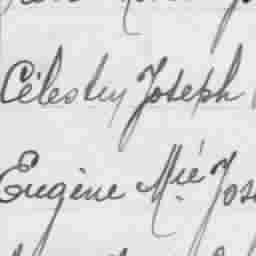 Célestin Joseph
Eugène Mié Jos